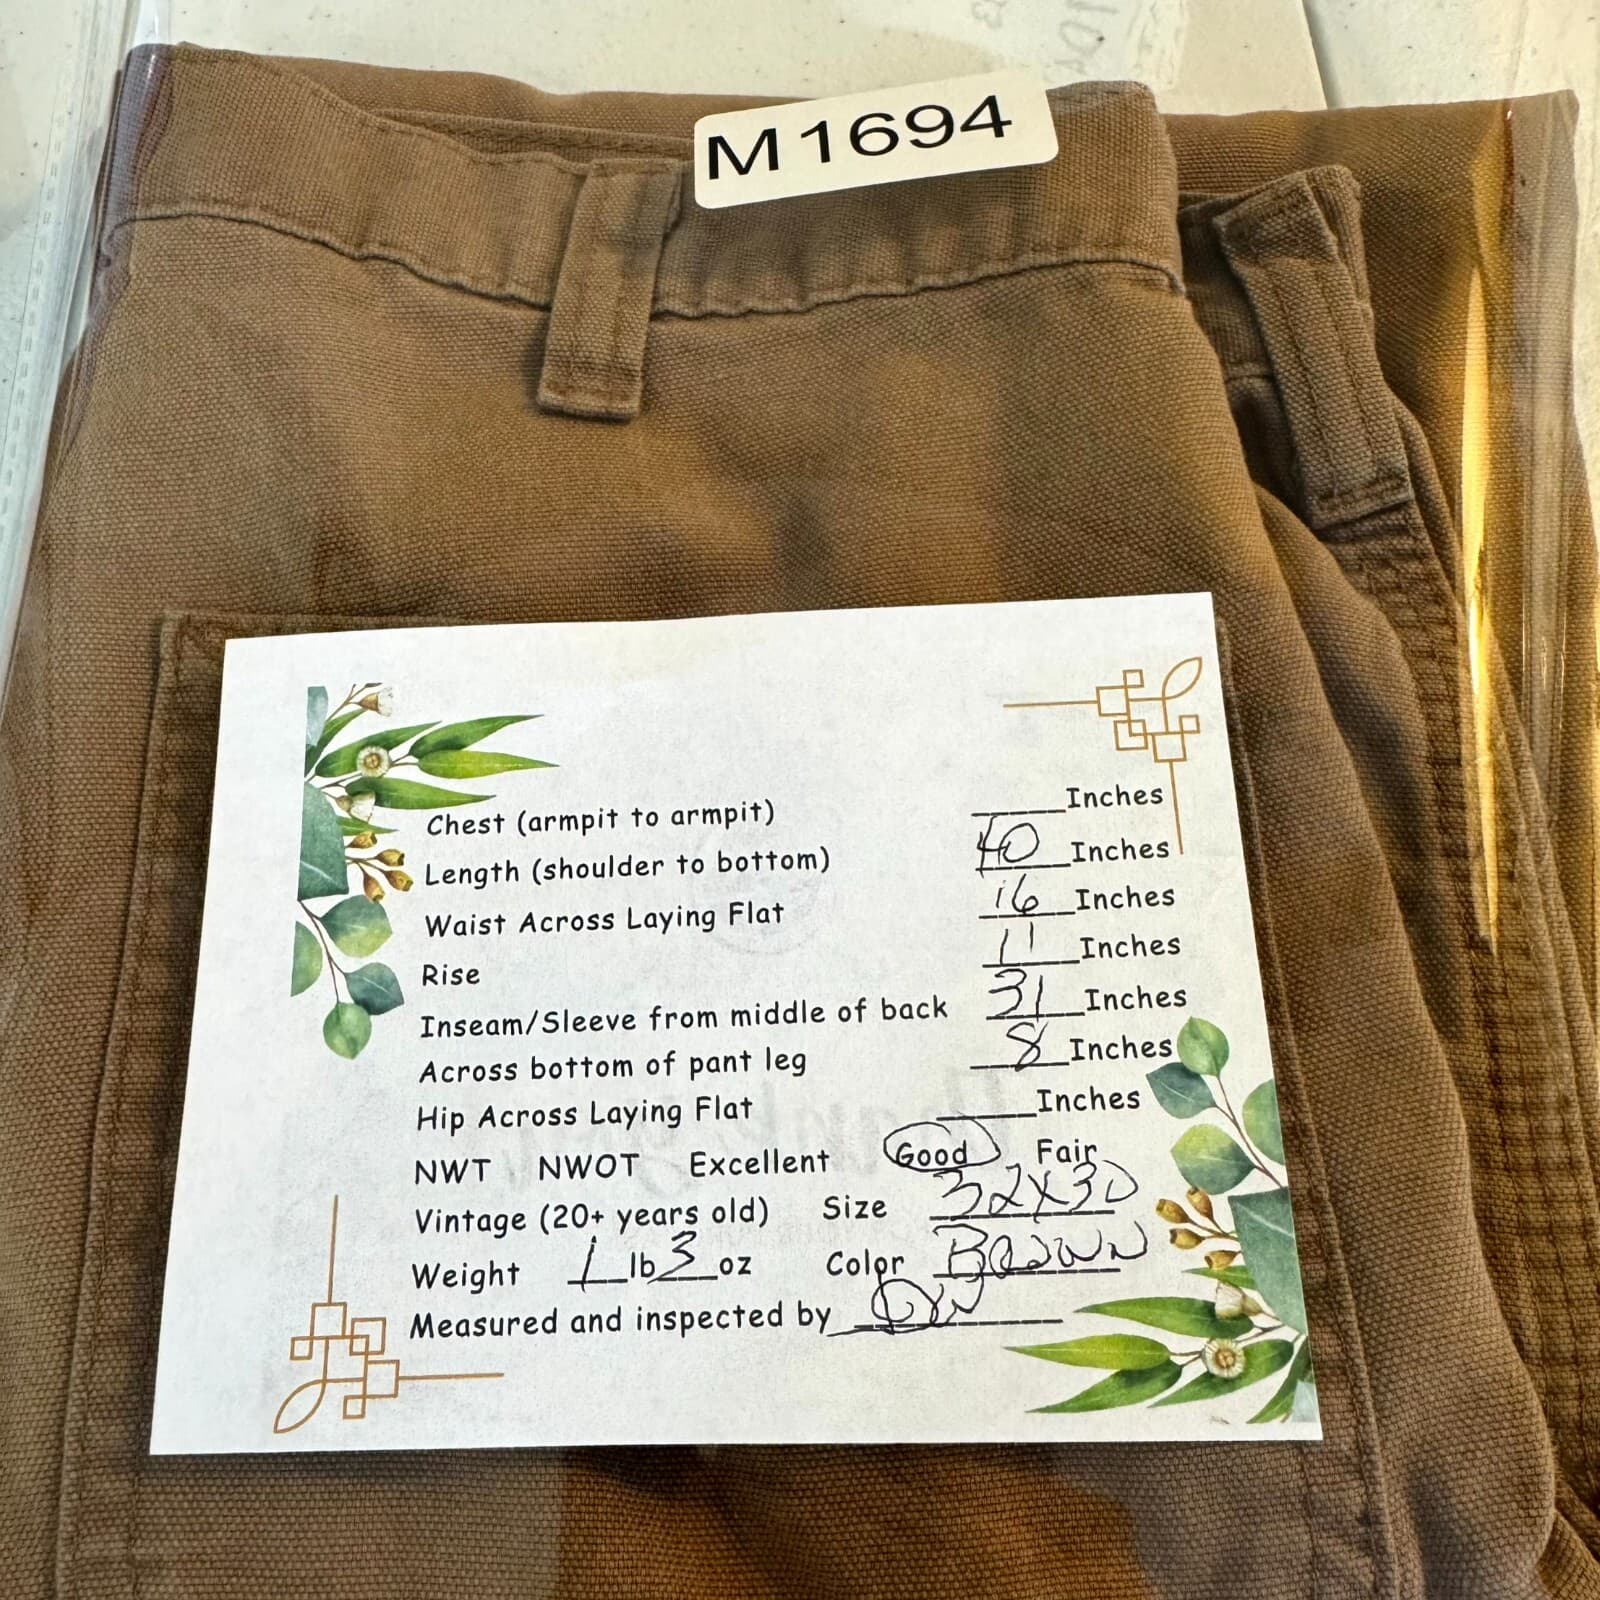 M1694
Chest (armpit to armpit) ____Inches
Length (shoulder to bottom) 40 Inches
Waist Across Laying Flat 16 Inches
Rise 11 Inches
Inseam/Sleeve from middle of back 31 Inches
Across bottom of pant leg 8 Inches
Hip Across Laying Flat ____Inches
NWT NWOT Excellent Good Fair
Vintage (20+ years old) Size 32x30
Weight 1 lb 3 oz Color Brown
Measured and inspected by